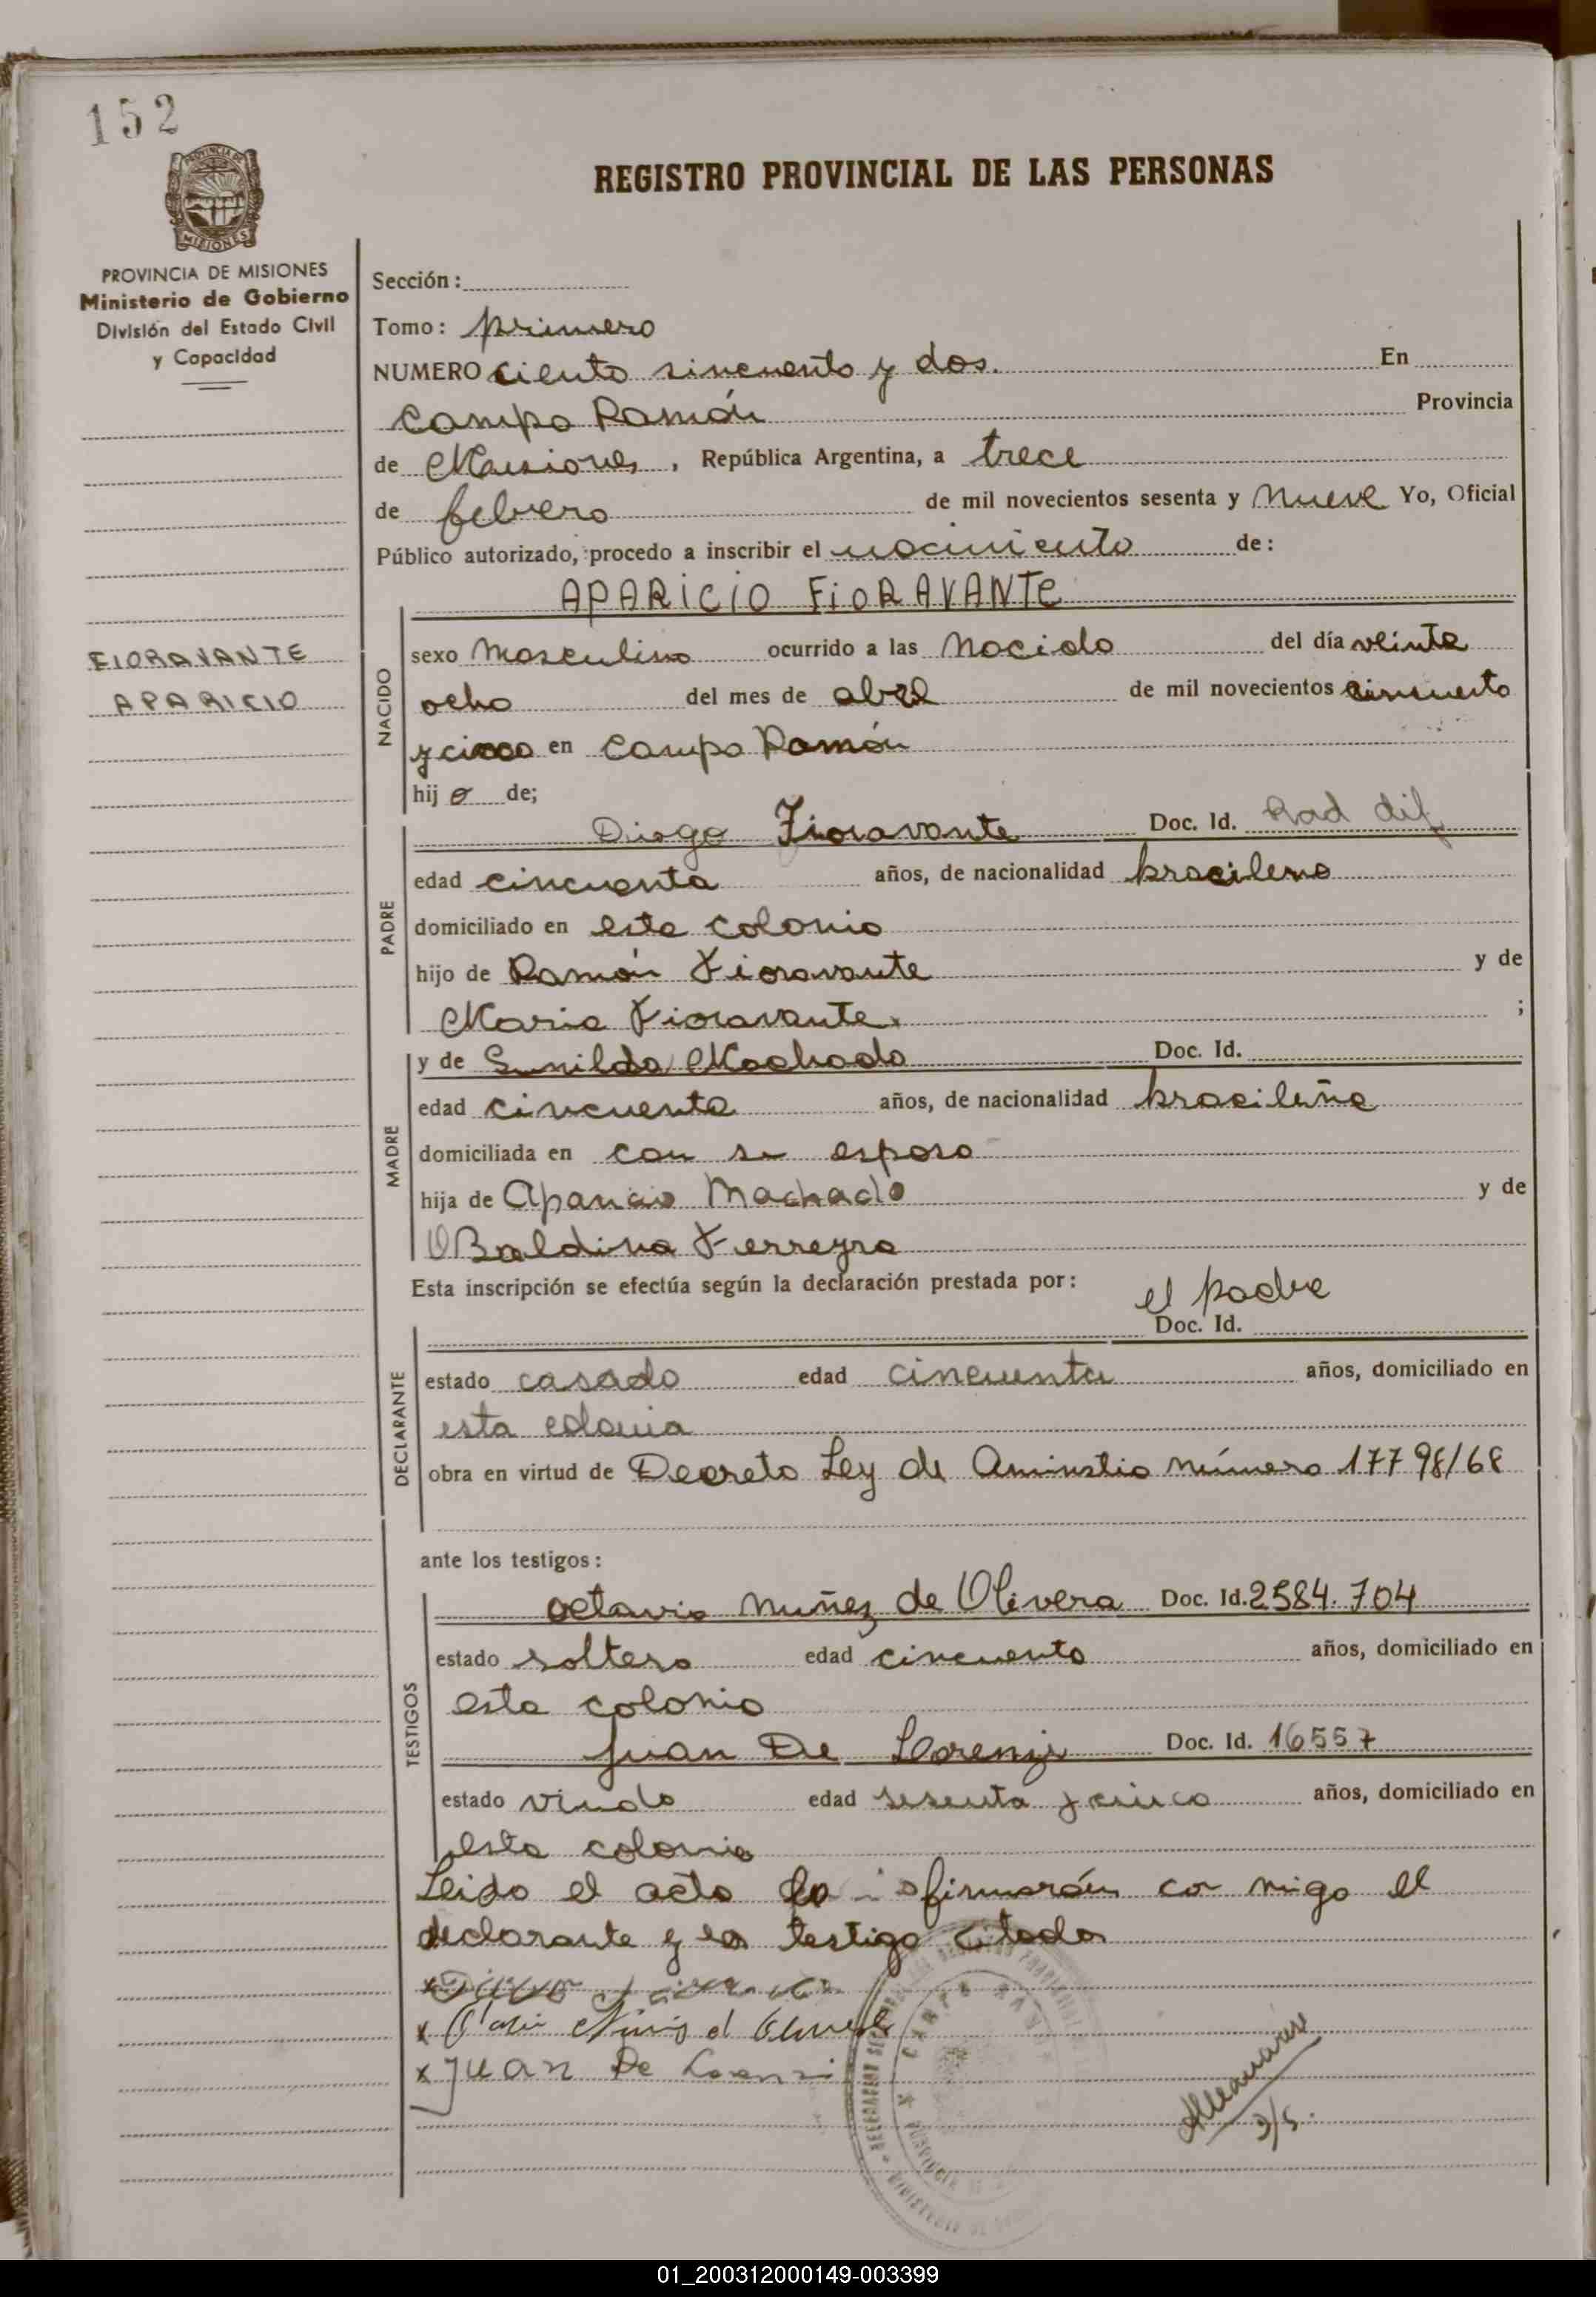 152
REGISTRO PROVINCIAL DE LAS PERSONAS
PROVINCIA DE MISIONES
Ministerio de Gobierno
División del Estado Civil
y Capacidad
Sección:
Tomo: primero
NUMERO ciento sincuento y dos. En
Campo Ramón Provincia
de Misiones, República Argentina, a trece
de febrero de mil novecientos sesenta y nueve Yo, Oficial
Público autorizado, procedo a inscribir el nacimiento de:
APARICIO FIORAVANTE
FIORAVANTE
APARICIO
NACIDO
sexo Masculino ocurrido a las Nacido del día veinte
ocho del mes de abril de mil novecientos cincuenta
y cinco en Campo Ramón
hijo de;
PADRE
Diego Fioravante Doc. Id. Rad dif
edad cincuenta años, de nacionalidad brasileno
domiciliado en esta colonia
hijo de Ramón Fioravante y de
Maria Fioravante ;
MADRE
y de Machado Doc. Id.
edad cincuenta años, de nacionalidad brasileña
domiciliada en con su esposo
hija de Aparicio Machado y de
Ferreyra
Esta inscripción se efectúa según la declaración prestada por: el padre
Doc. Id.
DECLARANTE
estado casado edad cincuenta años, domiciliado en
esta colonia
obra en virtud de Decreto Ley de Aminstia número 17798/68
ante los testigos:
TESTIGOS
octavio Nuñez de Olivera Doc. Id. 2584.704
estado soltero edad cincuenta años, domiciliado en
esta colonia
Juan De Lorenzi Doc. Id. 16557
estado viudo edad sesenta y cinco años, domiciliado en
esta colonia
Leido el acta firmarán con migo el
declarante y los testigo citados
x
x
x Juan De Lorenzi
01_200312000149-003399